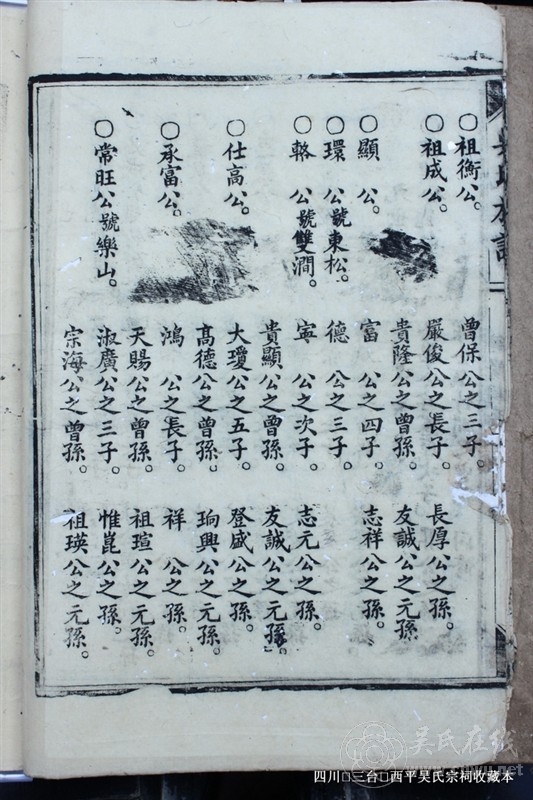 ○祖衡公。 曾保公之三子。
○祖成公。 嚴俊公之長子。 長厚公之孫。
貴隆公之曾孫。 友誠公之元孫
○顯 公。 富 公之四子。 志祥公之孫。
○環 公號東松。 德 公之三子。
○輅 公號雙澗。 寧 公之次子。 志元公之孫。
貴顯公之曾孫。 友誠公之元孫。
○仕高公。 大瓊公之五子。 登盛公之孫。
高德公之曾孫。 珦興公之元孫。
○承富公。 鴻 公之長子。 祥 公之孫。
天賜公之曾孫。 祖瑄公之元孫。
○常旺公號樂山。 淑廣公之三子。 惟崑公之孫。
宗海公之曾孫。 祖瑛公之元孫。
吴氏在线
四川□三台□西平吴氏宗祠收藏本